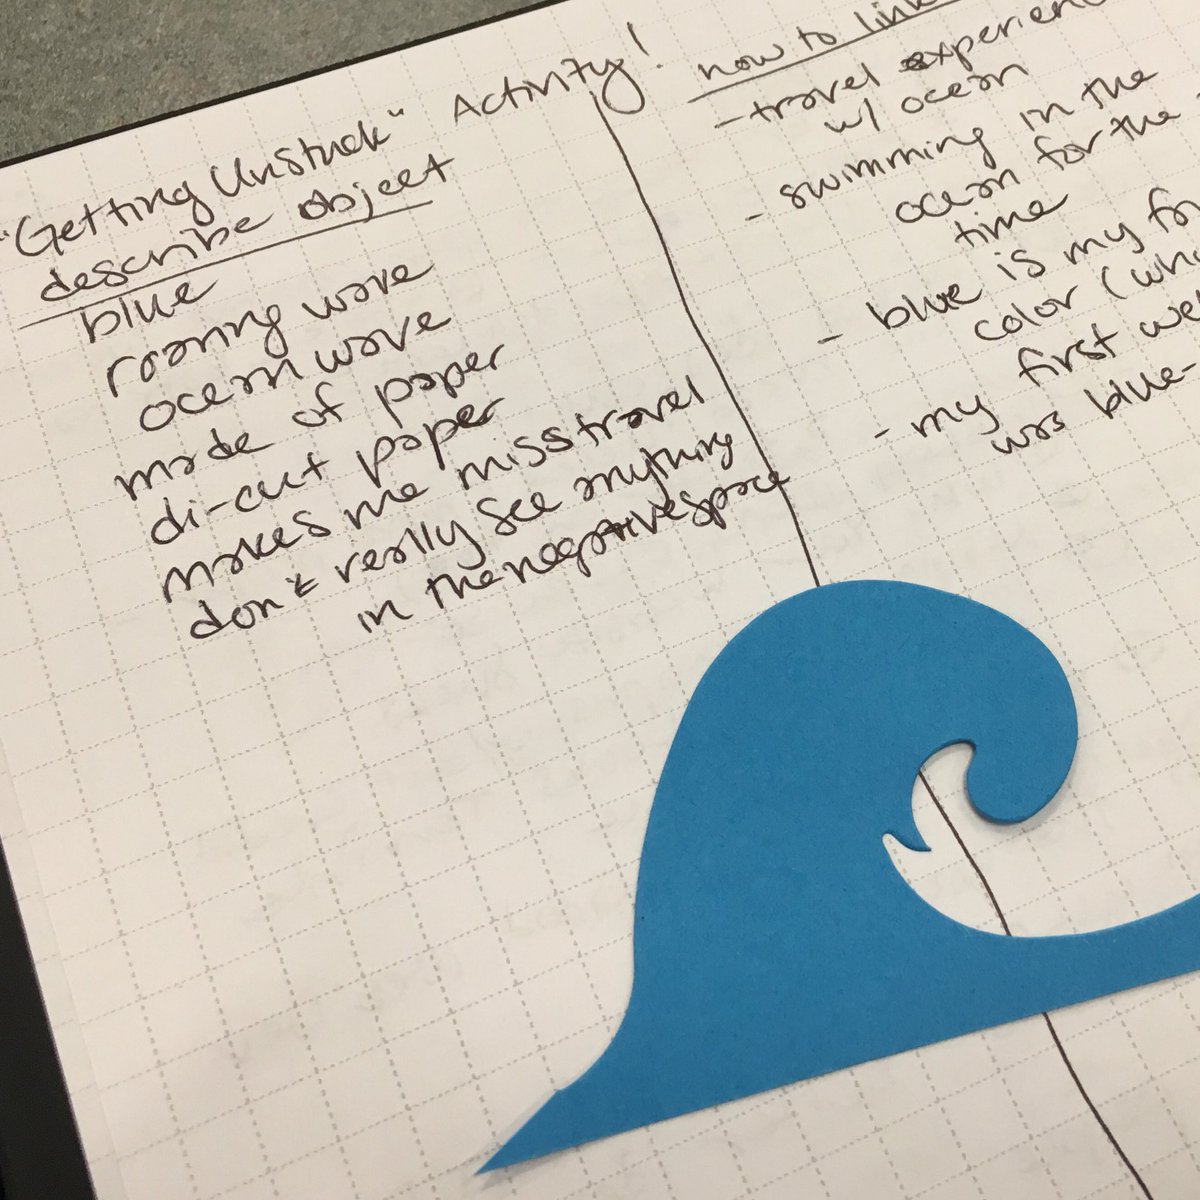 "Getting Unstuck" Activity!
describe object
blue
roaring wave
ocean wave
made of paper
di-cut paper
makes me miss travel
don't really see anything
in the negative space
how to link
- travel experien
w/ ocean
- swimming in the
ocean for the
time
- blue is my
color (wh
- my first we
was blue-